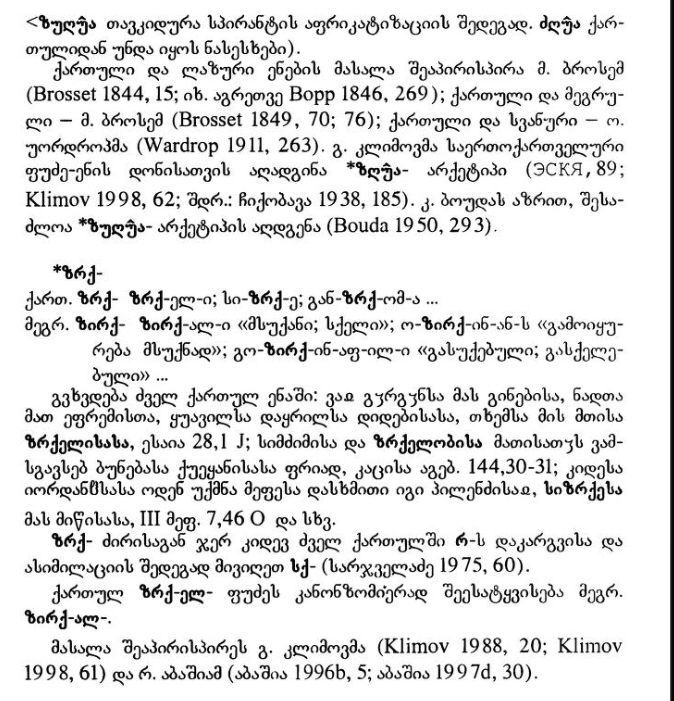 <ზუღჳა თავკიდურა სპირანტის აფრიკატიზაციის შედეგად. ძღჳა ქარ-
თულიდან უნდა იყოს ნასესხები).
ქართული და ლაზური ენების მასალა შეაპირისპირა მ. ბროსემ
(Brosset 1844, 15; იხ. აგრეთვე Bopp 1846, 269); ქართული და მეგრუ-
ლი – მ. ბროსემ (Brosset 1849, 70; 76); ქართული და სვანური – ო.
უორდროპმა (Wardrop 1911, 263). გ. კლიმოვმა საერთოქართველური
ფუძე-ენის დონისათვის აღადგინა *ზღჳა- არქეტიპი (ЭСКЯ, 89;
Klimov 1998, 62; შდრ.: ჩიქობავა 1938, 185). კ. ბოუდას აზრით, შესა-
ძლოა *ზუღჳა- არქეტიპის აღდგენა (Bouda 1950, 293).
*ზრქ-
ქართ. ზრქ- ზრქ-ელ-ი; სი-ზრქ-ე; გან-ზრქ-ომ-ა ...
მეგრ. ზირქ- ზირქ-ალ-ი «მსუქანი; სქელი»; ო-ზირქ-ინ-ან-ს «გამოიყუ-
რება მსუქნად»; გო-ზირქ-ინ-აფ-ილ-ი «გასუქებული; გასქელე-
ბული» ...
გვხვდება ძველ ქართულ ენაში: ვაჲ გჳრგჳნსა მას გინებისა, ნადთა
მათ ეფრემისთა, ყუავილსა დაყრილსა დიდებისასა, თხემსა მის მთისა
ზრქელისასა, ესაია 28,1 J; სიმძიმისა და ზრქელობისა მათისათჳს ვამ-
სგავსებ ბუნებასა ქუეყანისასა ფრიად, კაცისა აგებ. 144,30-31; კიდესა
იორდანჱსასა ოდენ უქმნა მეფესა დასხმითი იგი პილენძისაჲ, სიზრქესა
მას მიწისასა, III მეფ. 7,46 O და სხვ.
ზრქ- ძირისაგან ჯერ კიდევ ძველ ქართულში რ-ს დაკარგვისა და
ასიმილაციის შედეგად მივიღეთ სქ- (სარჯველაძე 1975, 60).
ქართულ ზრქ-ელ- ფუძეს კანონზომიერად შეესატყვისება მეგრ.
ზირქ-ალ-.
მასალა შეაპირისპირეს გ. კლიმოვმა (Klimov 1988, 20; Klimov
1998, 61) და რ. აბაშიამ (აბაშია 1996b, 5; აბაშია 1997d, 30).